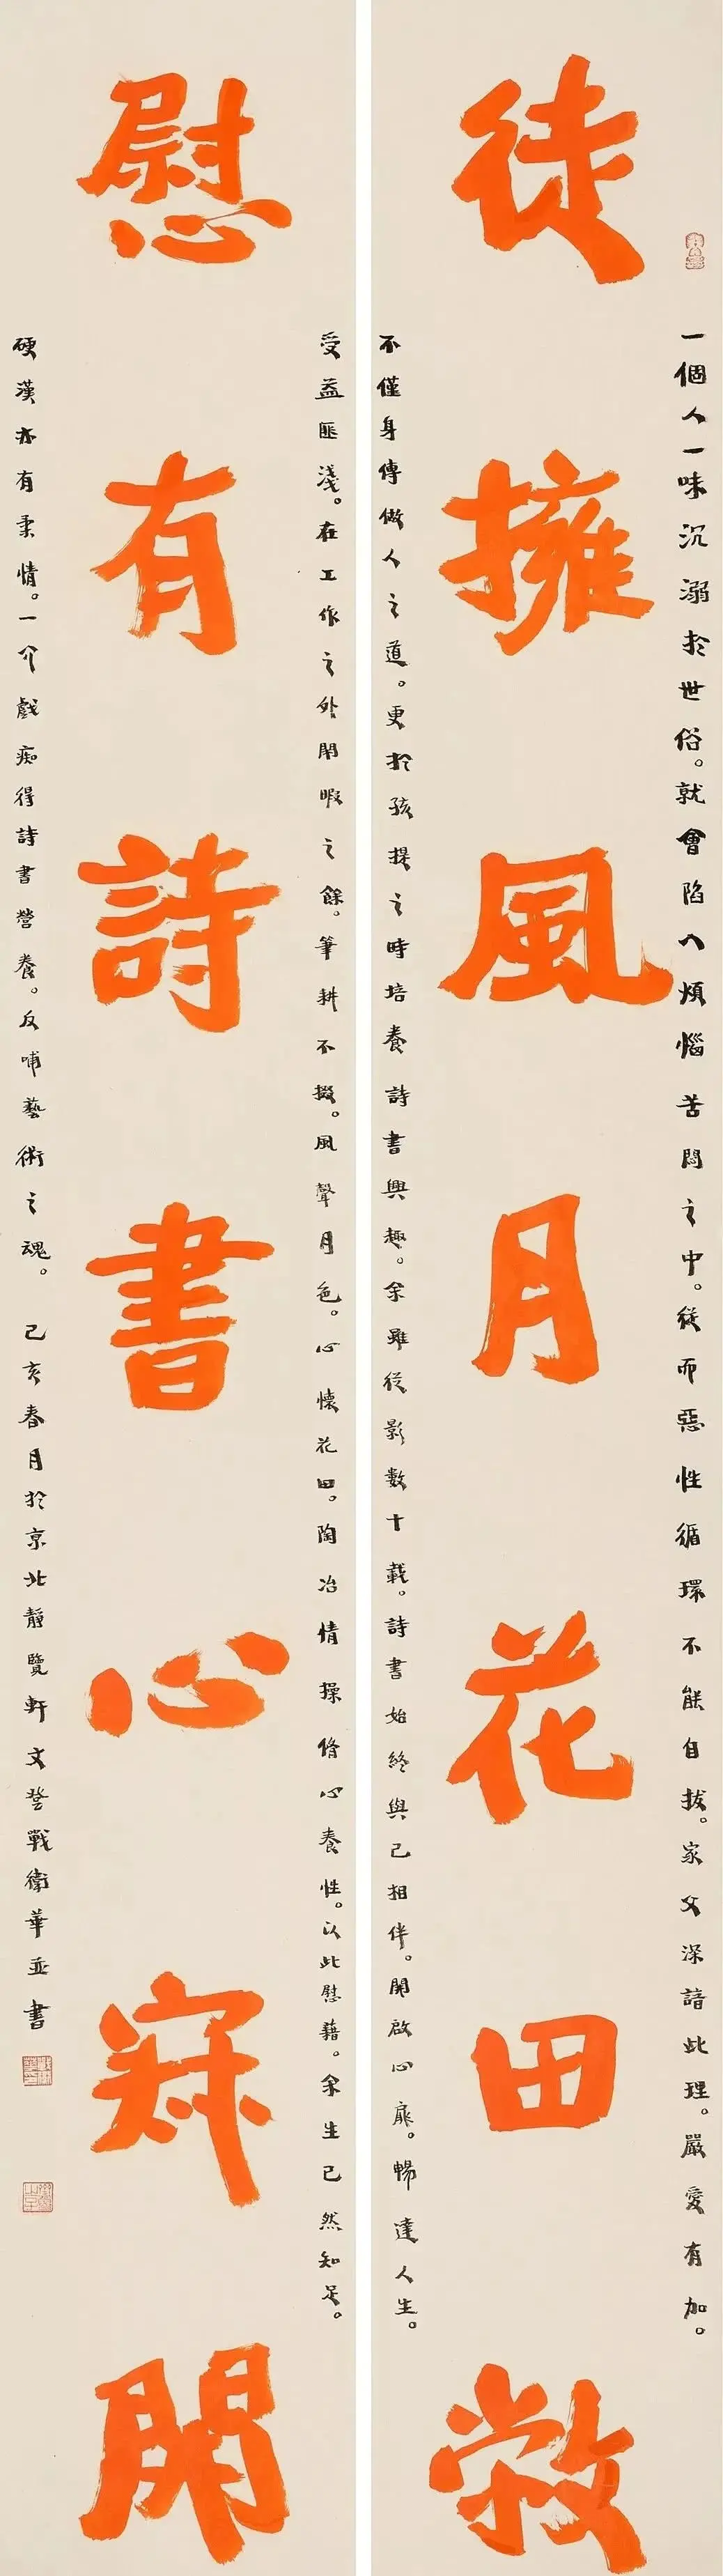 徒擁風月花田敞
慰有詩書心寂開
一個人一味沉溺於世俗。就會陷入煩惱苦悶之中。從而惡性循環不能自拔。家父深諳此理。嚴愛有加。
不僅身傳做人之道。更於孩提之時培養詩書興趣。余雖從影數十載。詩書始終與己相伴。開啟心扉。暢達人生。
受益匪淺。在工作之外閑暇之餘。筆耕不掇。風聲月色。心懷花田。陶冶情操脩心養性。以此慰藉。余生已然知足。
硬漢亦有柔情。一个戲痴得詩書營養。反哺藝術之魂。 己亥春月於京北靜覽軒文登戰衛華並書